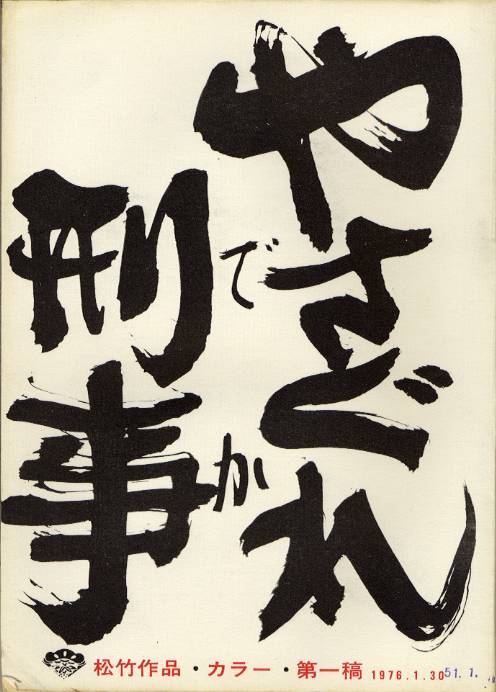 やさぐれ
刑事
でか
松竹作品・カラー・第一稿 1976.1.30
51.7.